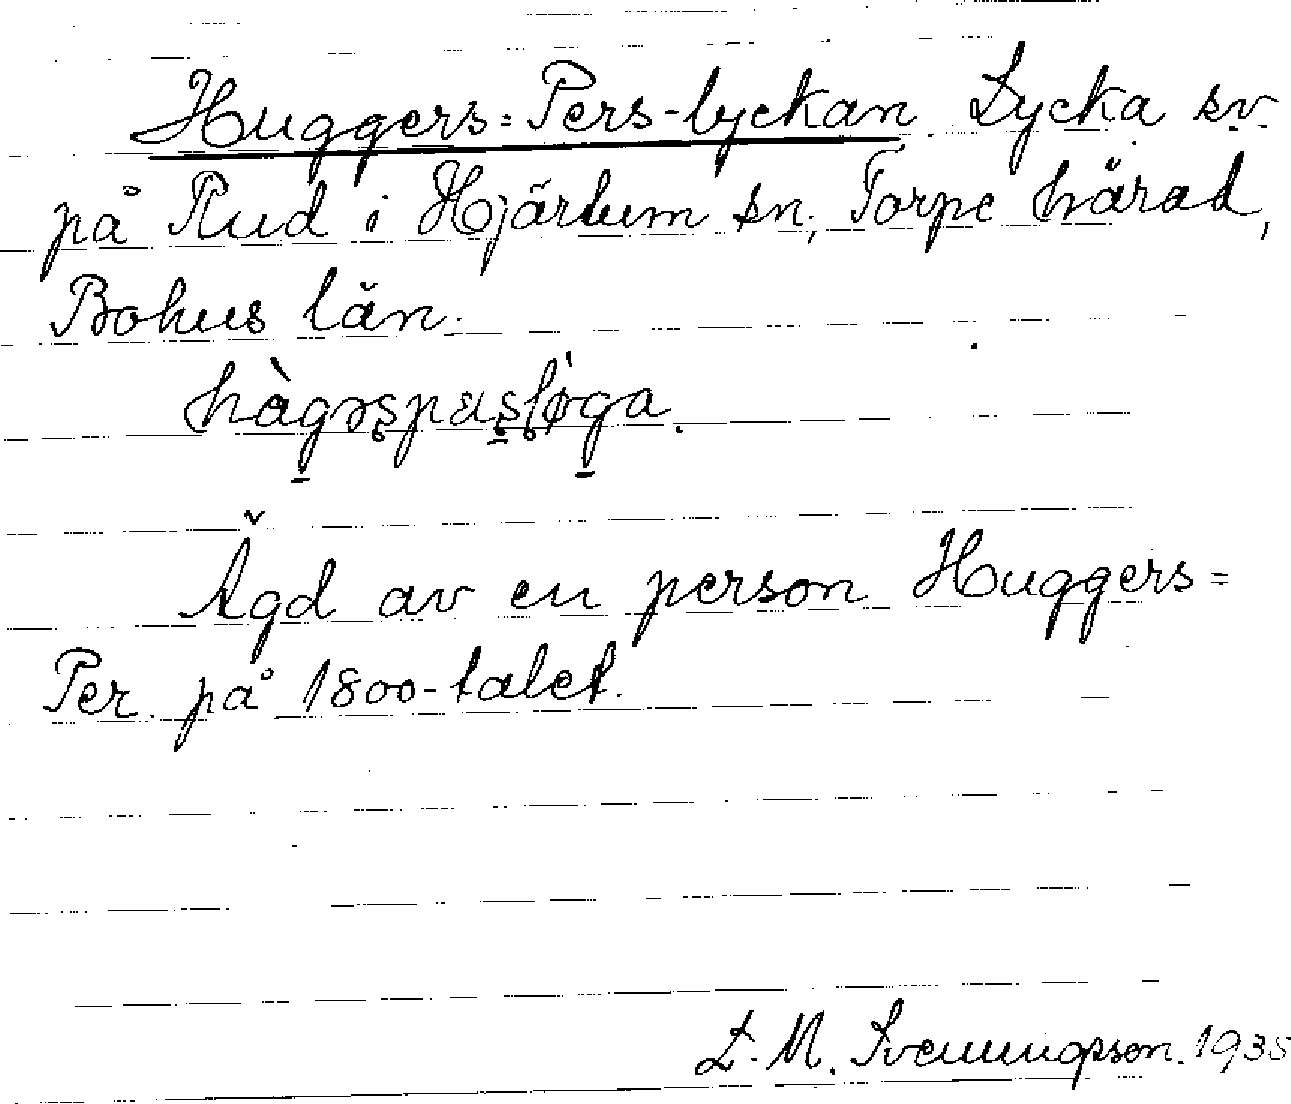 Huggers=Pers-lyckan. Lycka sv.
på Rud i Hjärtum sn, Torpe härad,
Bohus län.
Ägd av en person Huggers=
Per på 1800-talet.
L. M. Svenungsson. 1935